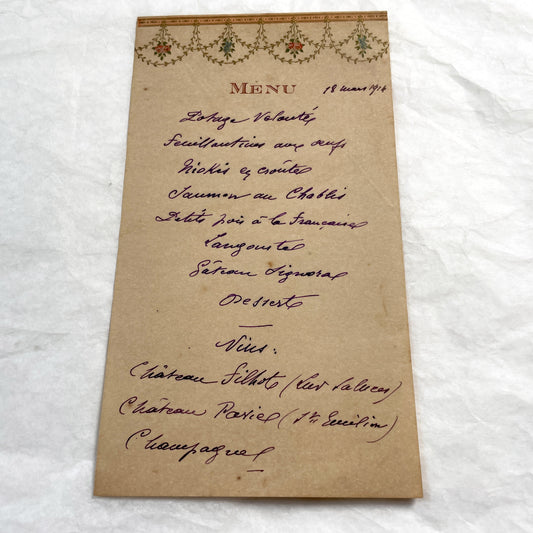 MENU 18 mars 1914
Potage Veloutés
Feuillantines aux oeufs
Niokis en croûtes
Saumon au Chablis
Petits pois à la Française
Langouste
Gâteau Signora
Dessert
Vins:
Château Filhot (Lur Saluces)
Château Pavie (St Emilion)
Champagne